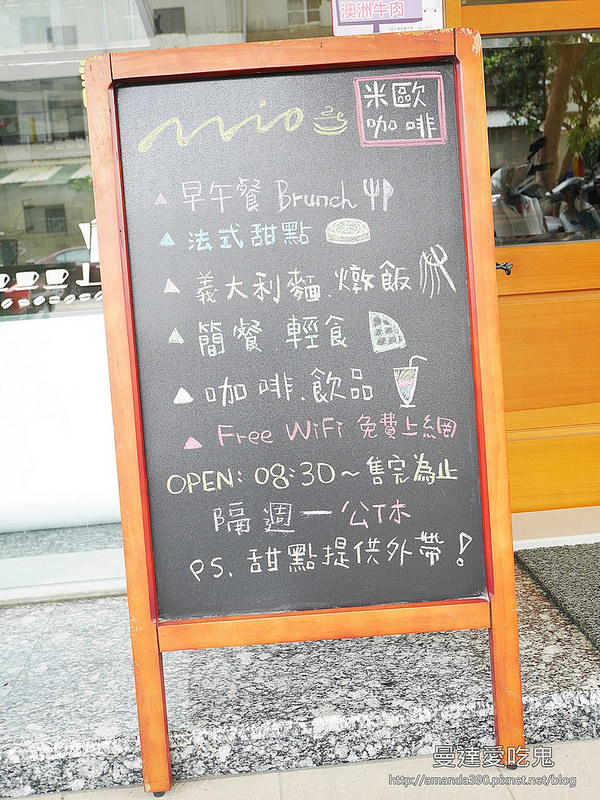 澳洲牛肉
mio
米歐
咖啡
早午餐 Brunch
法式甜點
義大利麵.燉飯
簡餐.輕食
咖啡.飲品
Free WiFi 免費上網
OPEN: 08:30~售完為止
隔週一公休
PS. 甜點提供外帶!
曼達愛吃鬼
http://amanda390.pixnet.net/blog